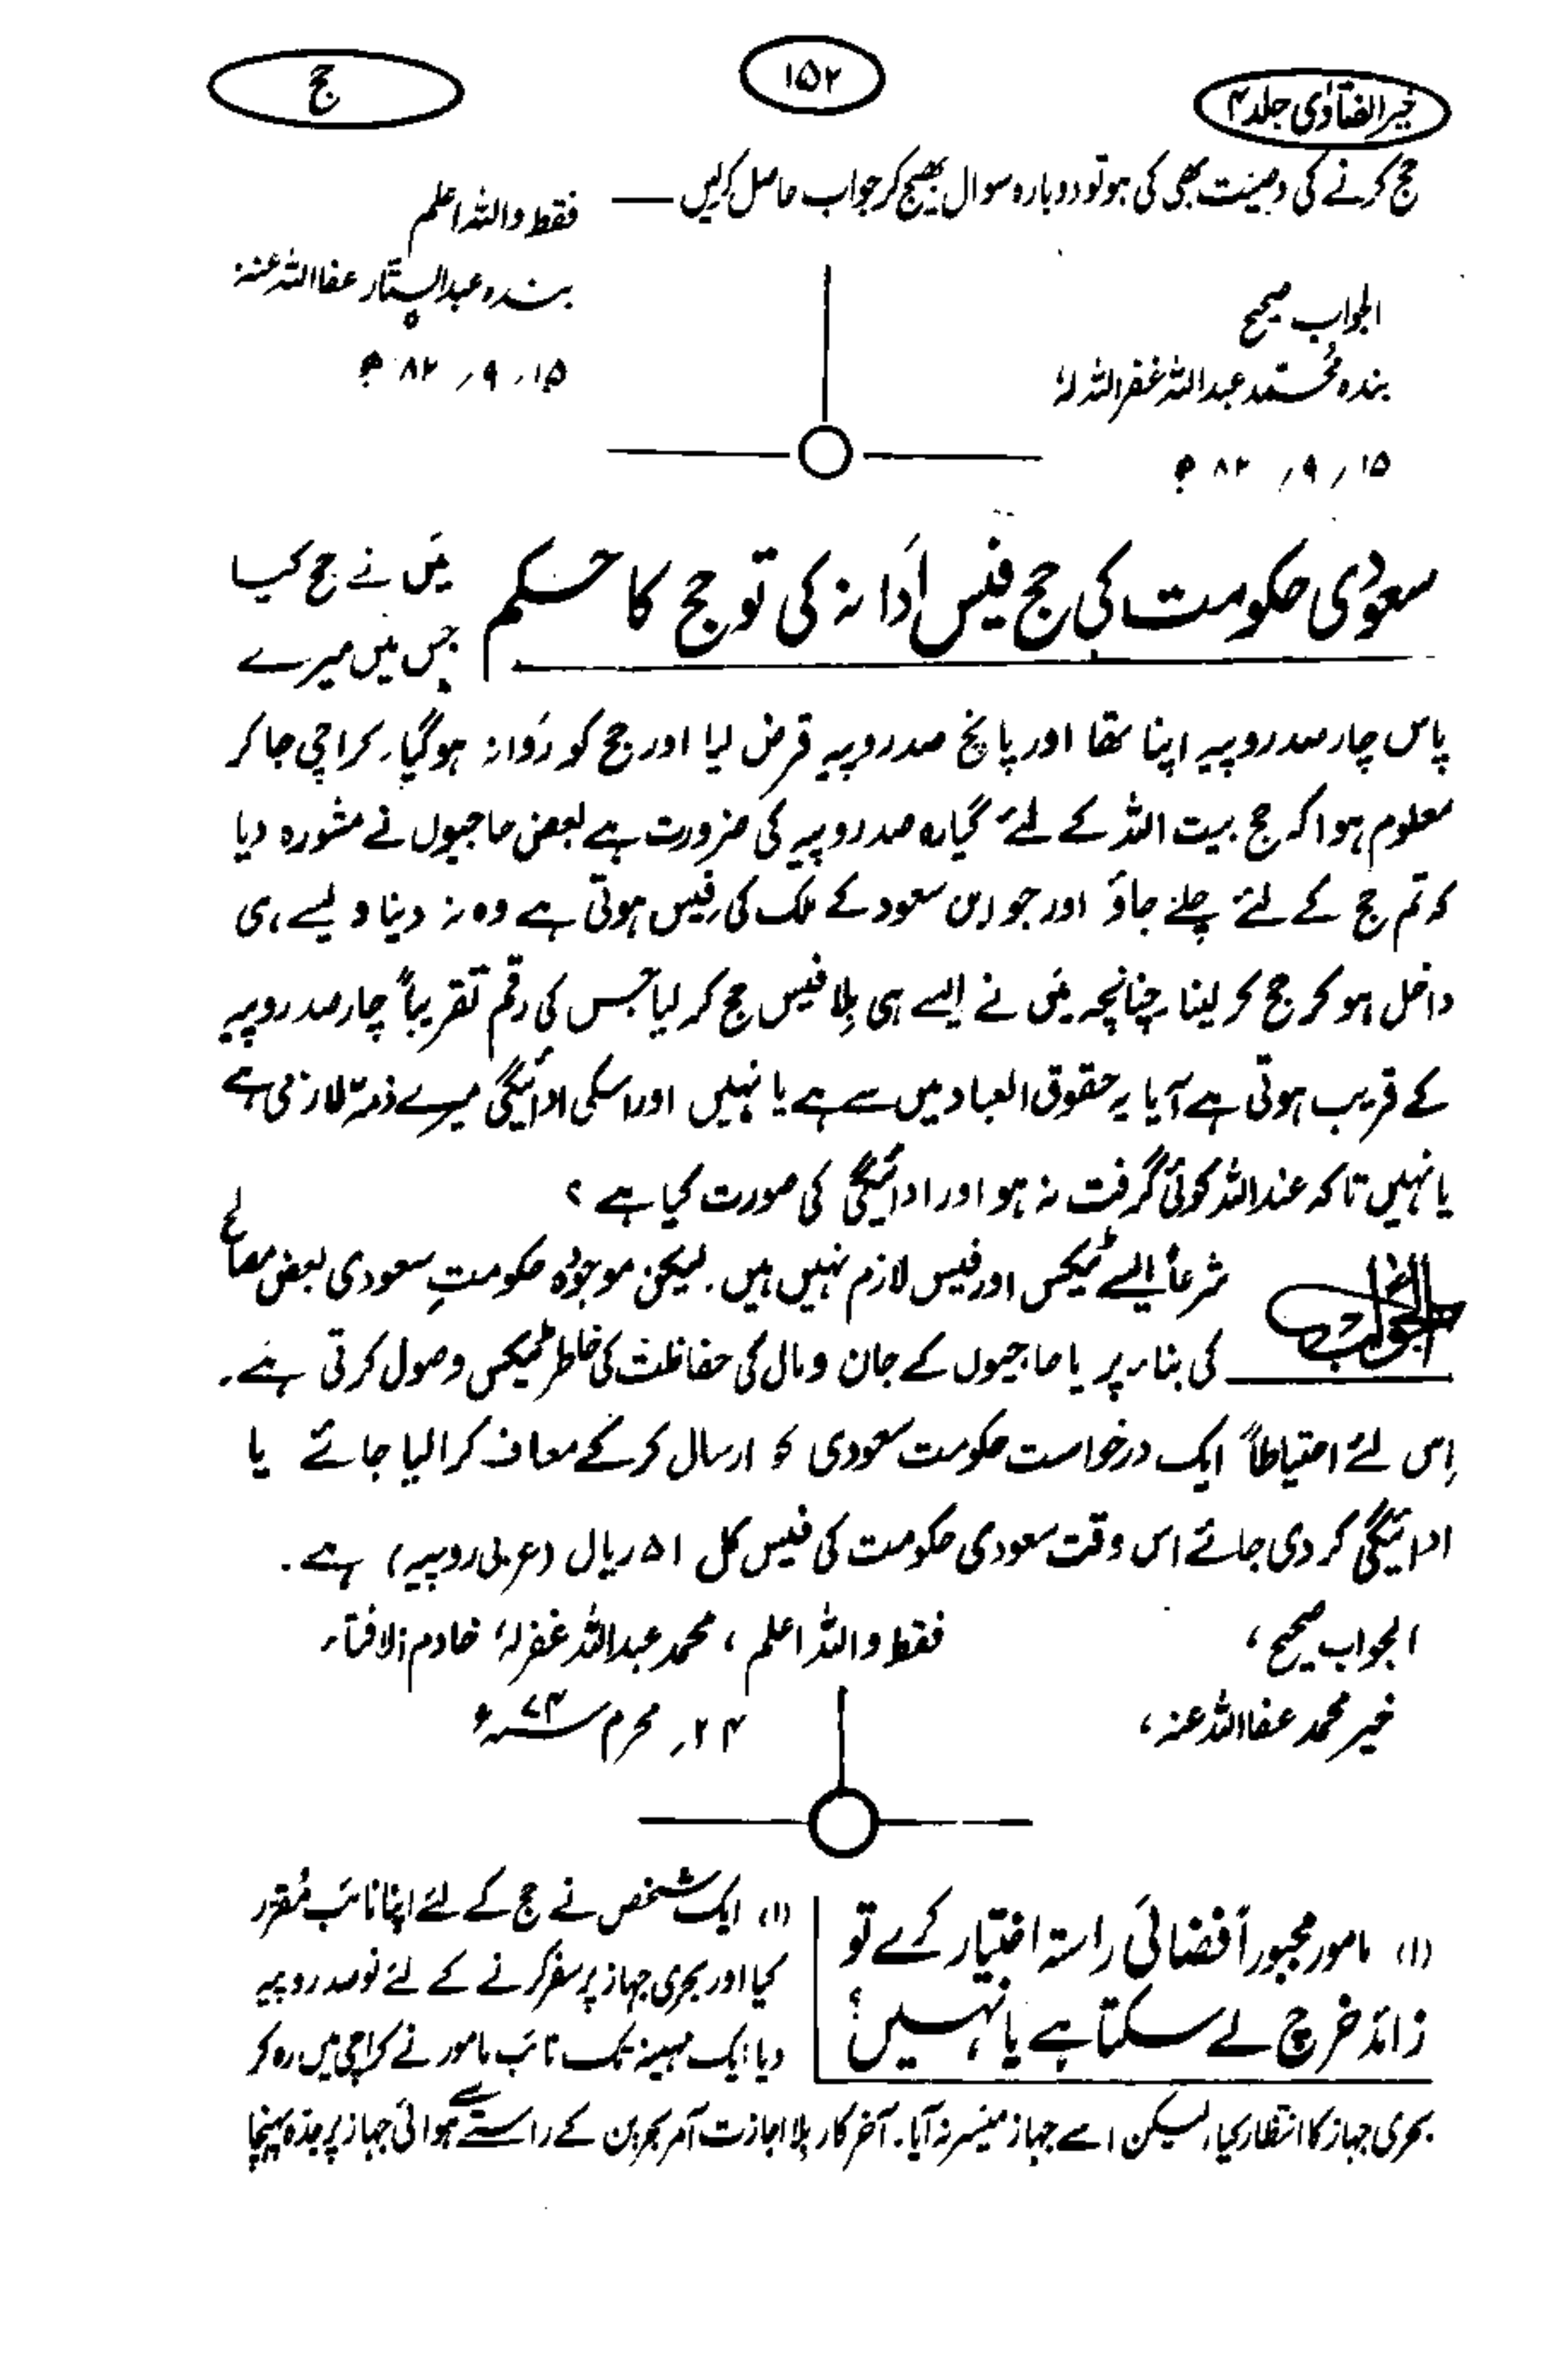 خیر الفتاوٰی جلد ۴
۱۵۲
حج
حج کرنے کی وصیّت بھی کی ہو تو دوبارہ سوال بھیج کر جواب حاصل کرلیں —
فقط واللہ اعلم
بندہ عبدالستّار عفا اللہ عنہ
۱۵ر ۹ر ۸۲ھ
الجواب صحیح
بندہ محمّد عبداللہ غفر اللہ لہٗ
۱۵ر ۹ر ۸۲ھ
سعودی حکومت کی حج فیس اَدا نہ کی تو حج کا حکم
مَیں نے حج کیا
جس میں میرے
پاس چار صد روپیہ اپنا تھا اور پانچ صد روپیہ قرض لیا اور حج کو رَوانہ ہوگیا۔ کراچی جا کر
معلوم ہوا کہ حج بیت اللہ کے لئے گیارہ صد روپیہ کی ضرورت ہے بعض حاجیوں نے مشورہ دیا
کہ تم حج کے لئے چلے جاؤ اور جو ابن سعود کے ملک کی فیس ہوتی ہے وہ نہ دینا ویسے ہی
داخل ہو کر حج کر لینا۔ چنانچہ مَیں نے ایسے ہی بِلا فیس حج کر لیا جس کی رقم تقریباً چار صد روپیہ
کے قریب ہوتی ہے آیا یہ حقوق العباد میں سے ہے یا نہیں اور اسکی ادائیگی میرے ذمّہ لازمی ہے
یا نہیں تاکہ عنداللہ کوئی گرفت نہ ہو اور ادائیگی کی صورت کیا ہے ؟
الجواب
شرعاً ایسے ٹیکس اور فیس لازم نہیں ہیں۔ لیکن موجودہ حکومتِ سعودی بعض مصالح
کی بناء پر یا حاجیوں کے جان و مال کی حفاظت کی خاطر ٹیکس وصول کرتی ہے۔
اِس لئے احتیاطاً ایک درخواست حکومت سعودی کو ارسال کر کے معاف کرا لیا جائے یا
ادائیگی کر دی جائے اس وقت سعودی حکومت کی فیس کل ۵۱ ریال (عربی روپیہ) ہے۔
فقط واللہ اعلم ، محمد عبداللہ غفرلہٗ خادم الافتاء
۲۴ر محرم ۷۳ھ
الجواب صحیح ،
خیر محمد عفا اللہ عنہ ،
(۱) مامور مجبوراً فضائی راستہ اختیار کرے تو
زائد خرچ لے سکتا ہے یا نہیں؟
(۱) ایک شخص نے حج کے لئے اپنا نائب مُقرّر
کیا اور بحری جہاز پر سفر کرنے کے لئے نو صد روپیہ
دیا ایک مہینہ تک نائب مامور نے کراچی میں رہ کر
بحری جہاز کا انتظار کیا، لیکن اسے جہاز میسّر نہ آیا۔ آخر کار بلا اجازت آمر بحرین کے راستے سے ہوائی جہاز پر جدّہ پہنچا